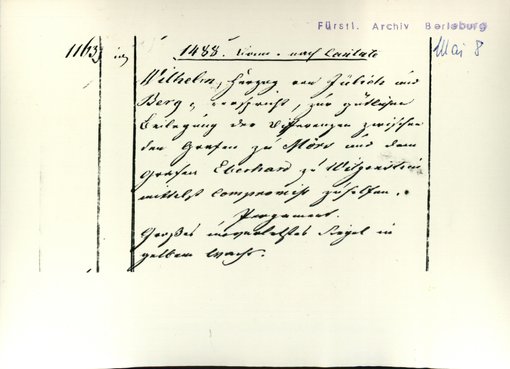 Fürstl. Archiv Berleburg
Mai 8
1163
1488. nach Cantate
Wilhelm, Herzog von Jülich und
Berg, verspricht, zur gütlichen
Beilegung der Differenzen zwischen
den Grafen zu Mörs und dem
Grafen Eberhard zu Witgenstein
mittelst Compromiss zu helfen.
Pergament.
Großes unverletztes Siegel in
gelbem Wachs.